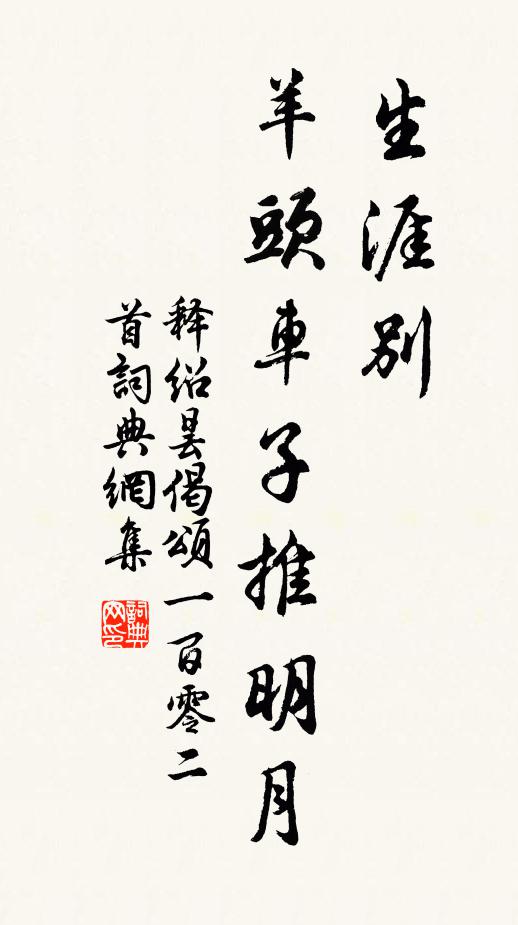 生涯別
羊頭車子推明月
释紹曇偈頌一百零二
首詞典網集
詞典网印